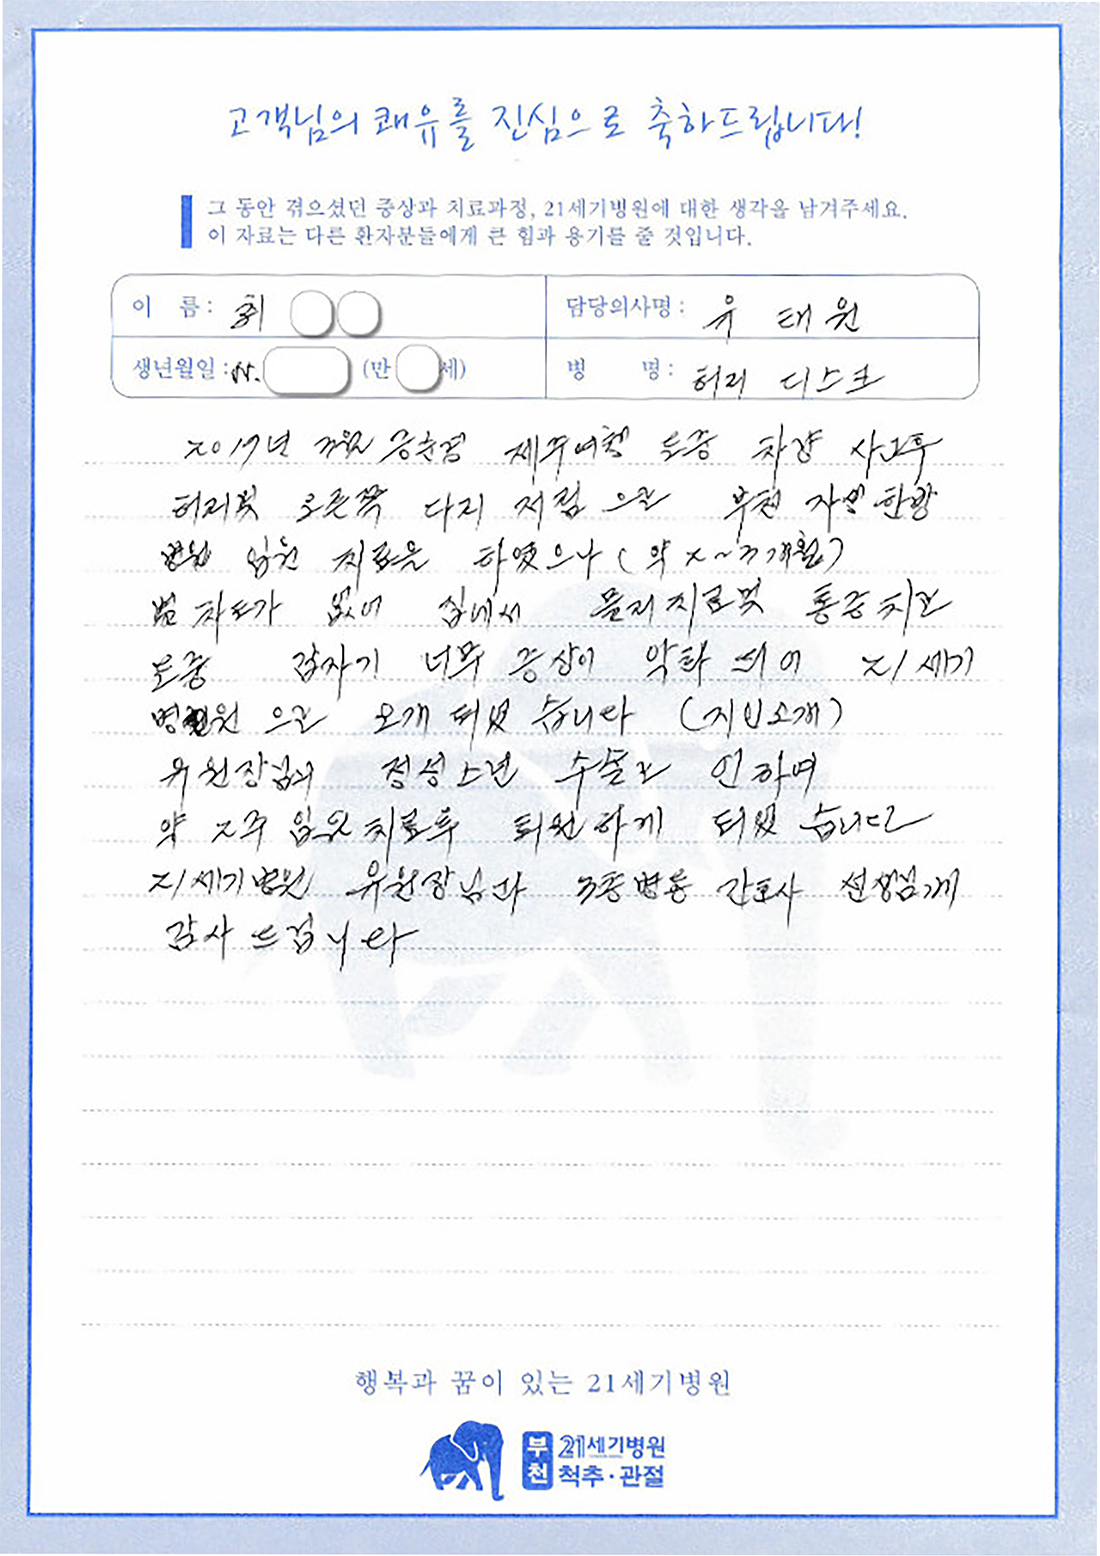 고객님의 쾌유를 진심으로 축하드립니다!
그 동안 겪으셨던 증상과 치료과정, 21세기병원에 대한 생각을 남겨주세요.
이 자료는 다른 환자분들에게 큰 힘과 용기를 줄 것입니다.
이 름 : 최
담당의사명 : 유 태 원
생년월일 : (만 세)
병 명 : 허리 디스크
2019년 3월 중순경 제주여행 도중 차량 사고후
허리및 오른쪽 다리 저림 으로 부천 자생 한방
병원 입원 치료를 하였으나 (약 2~3개월)
별 차도가 없어 집에서 물리치료및 통증치료
도중 갑자기 너무 증상이 악화 되어 21세기
병원 으로 오게 되었 습니다 (지인소개)
유 원장님의 정성스런 수술로 인하여
약 2주 입원 치료후 퇴원 하게 되었 습니다
21세기병원 유원장님과 3층병동 간호사 선생님께
감사 드립니다
행복과 꿈이 있는 21세기병원
부천 21세기병원
척추·관절